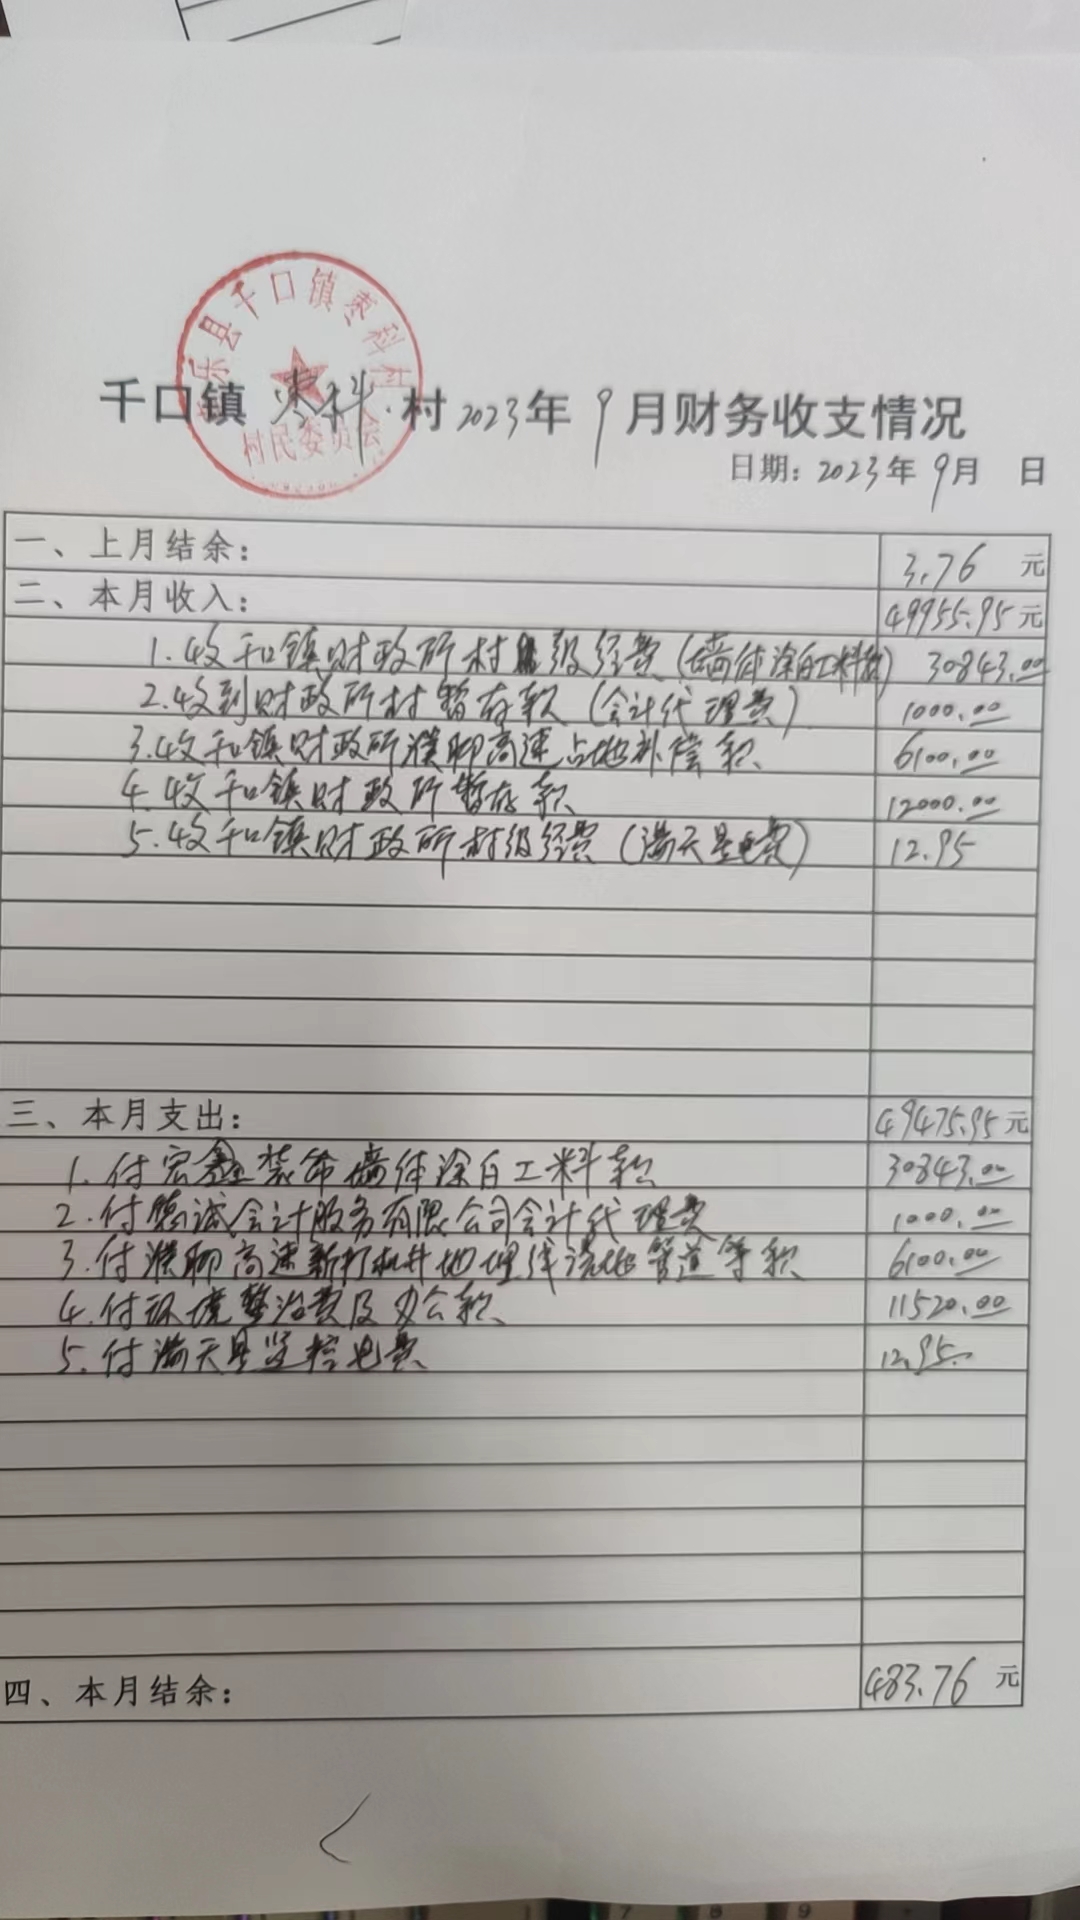 乐县千口镇枣科村
村民委员会
千口镇 枣科 村 2023年 9 月财务收支情况
日期: 2023年 9月 日
一、上月结余: 3.76 元
二、本月收入: 49955.95元
1.收到镇财政所村级经费(墙体涂白工料款) 30843.00
2.收到财政所村暂存款(会计代理费) 1000.00
3.收到镇财政所濮聊高速占地补偿款 6100.00
4.收到镇财政所暂存款 12000.00
5.收到镇财政所村级经费(满天星电费) 12.95
三、本月支出: 49475.95元
1.付宏鑫装饰墙体涂白工料款 30843.00
2.付德诚会计服务有限公司会计代理费 1000.00
3.付濮聊高速新打机井地埋线浇地管道等款 6100.00
4.付环境整治费及办公款 11520.00
5.付满天星监控电费 12.95
四、本月结余: 483.76 元